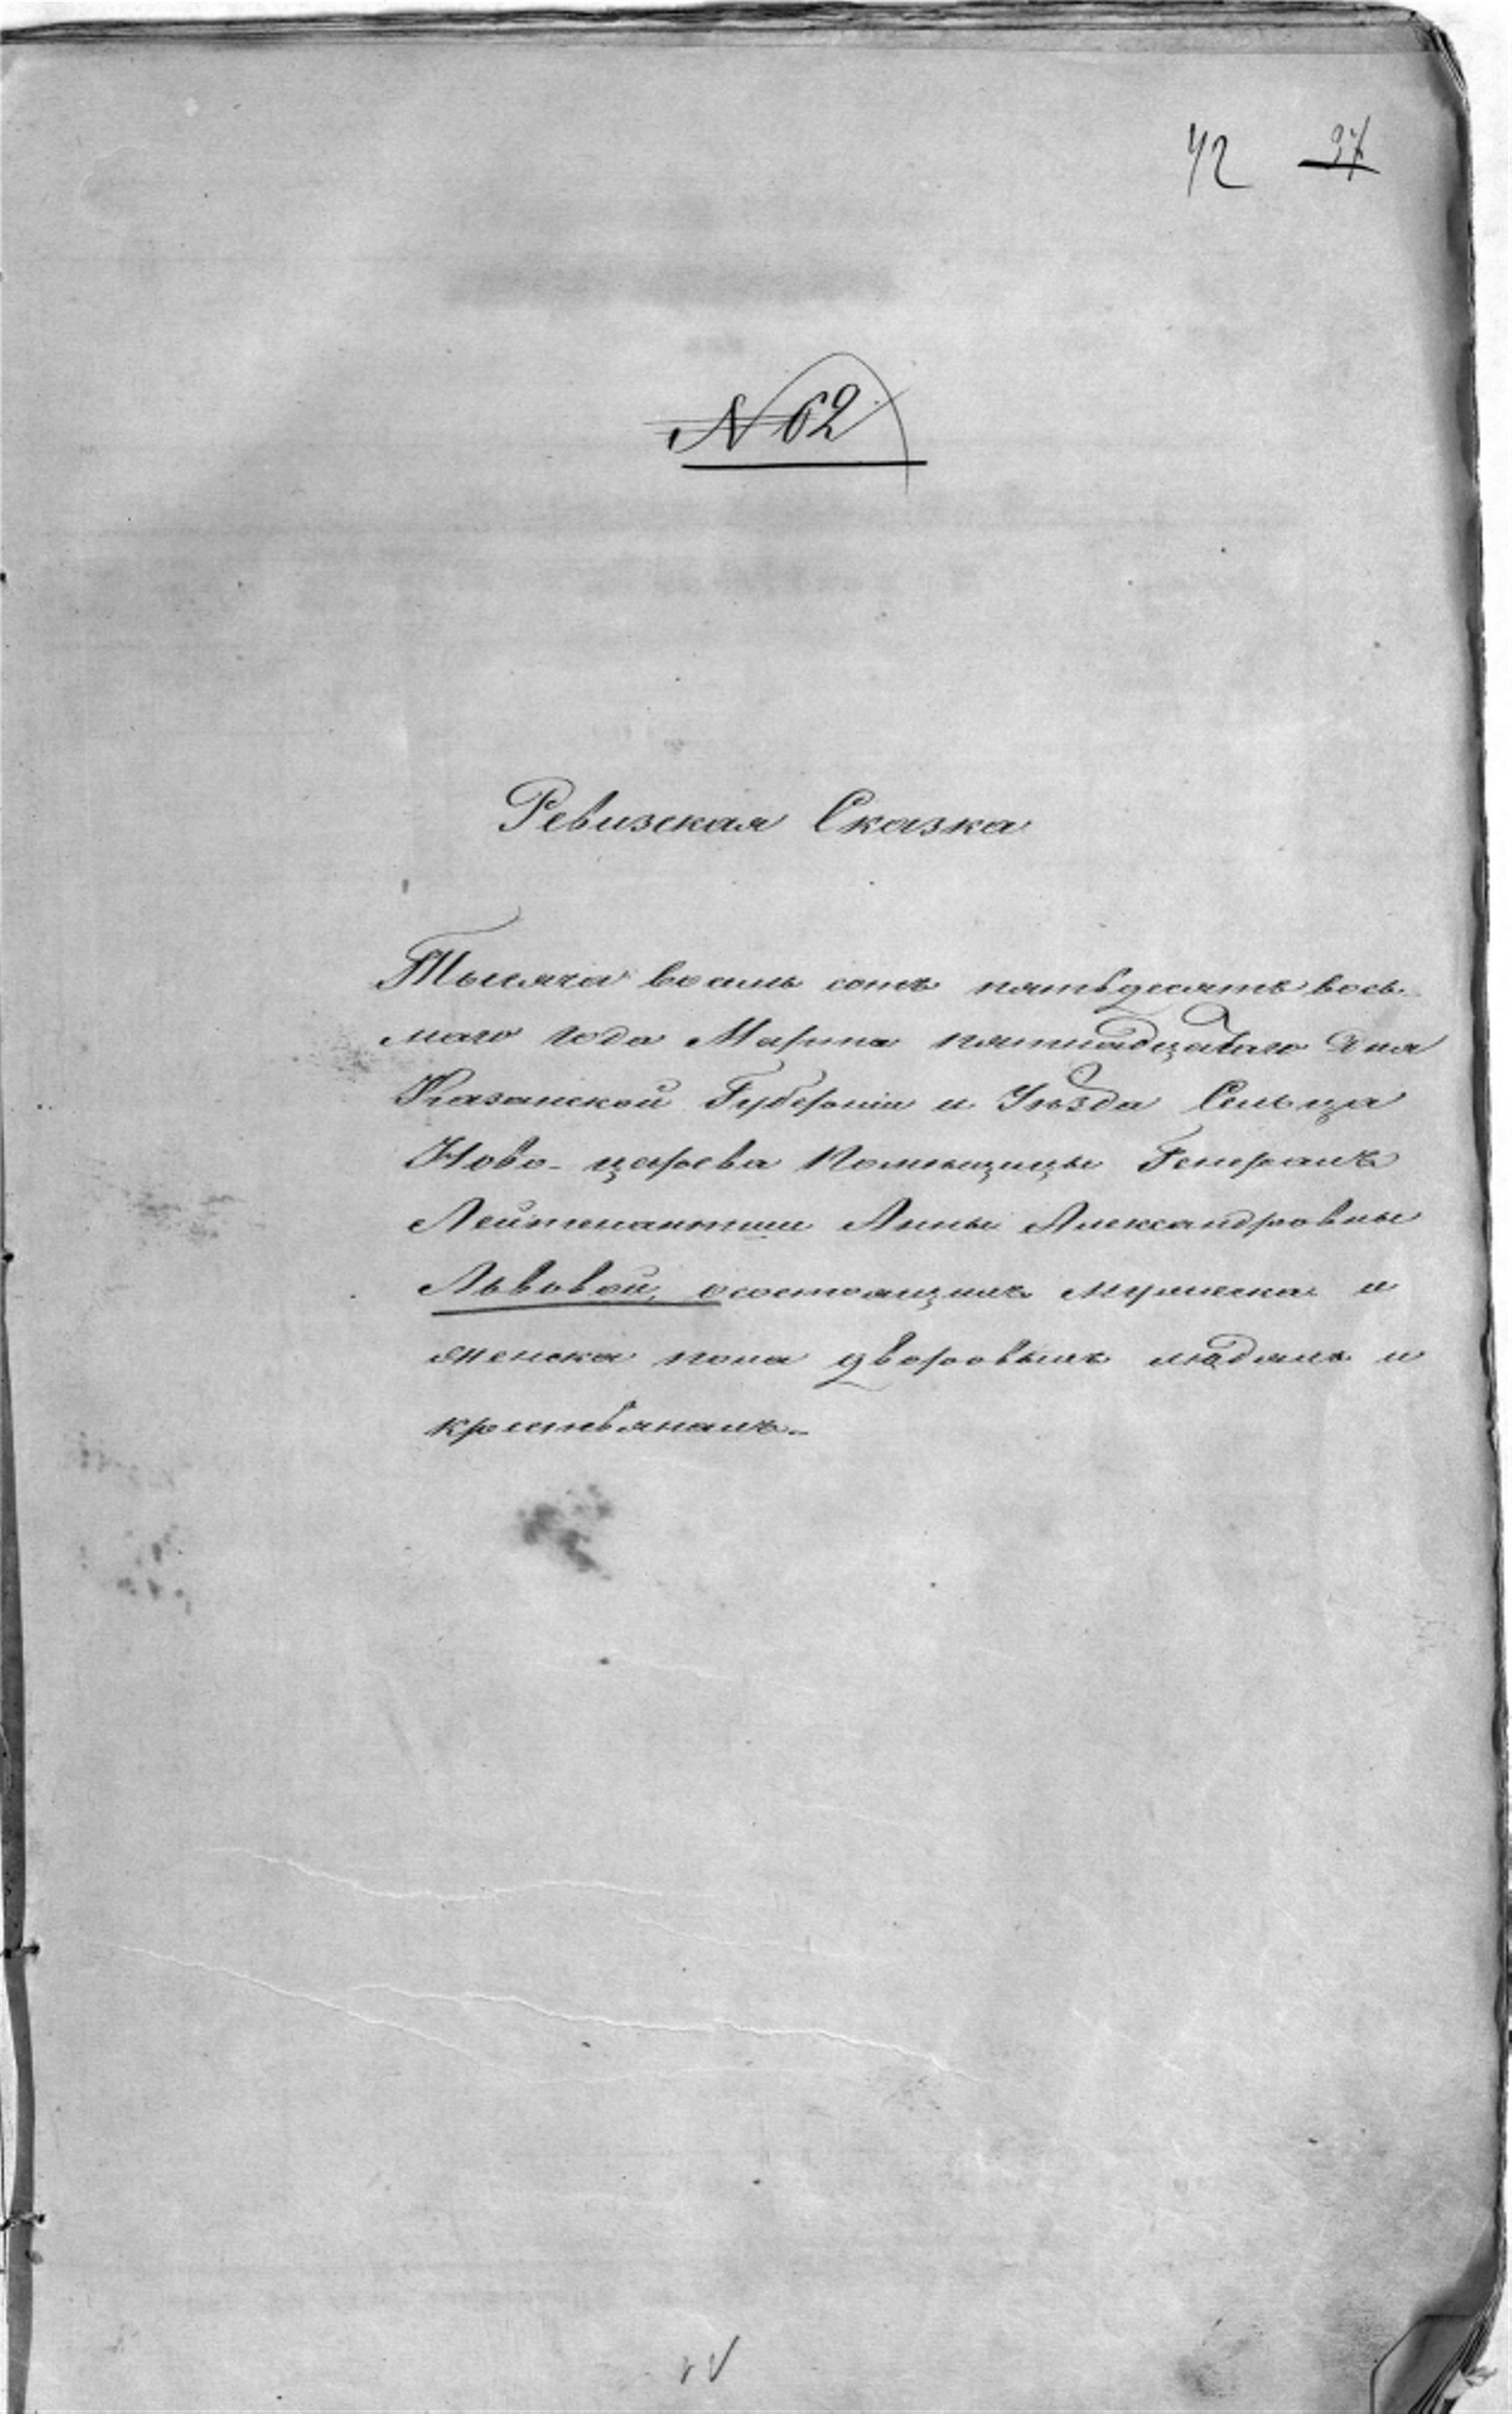 42 37
N 62
Ревизская Сказка
Тысяча восемь сотъ пятьдесятъ вось
маго года Марта пятнадцатаго дня
Казанской Губерніи и Уѣзда Сельца
Ново-царева Помѣщицы Генералъ
Лейтенантши Анны Александровны
Львовой, о состоящихъ мужеска и
женска пола дворовымъ людямъ и
крестьянамъ.